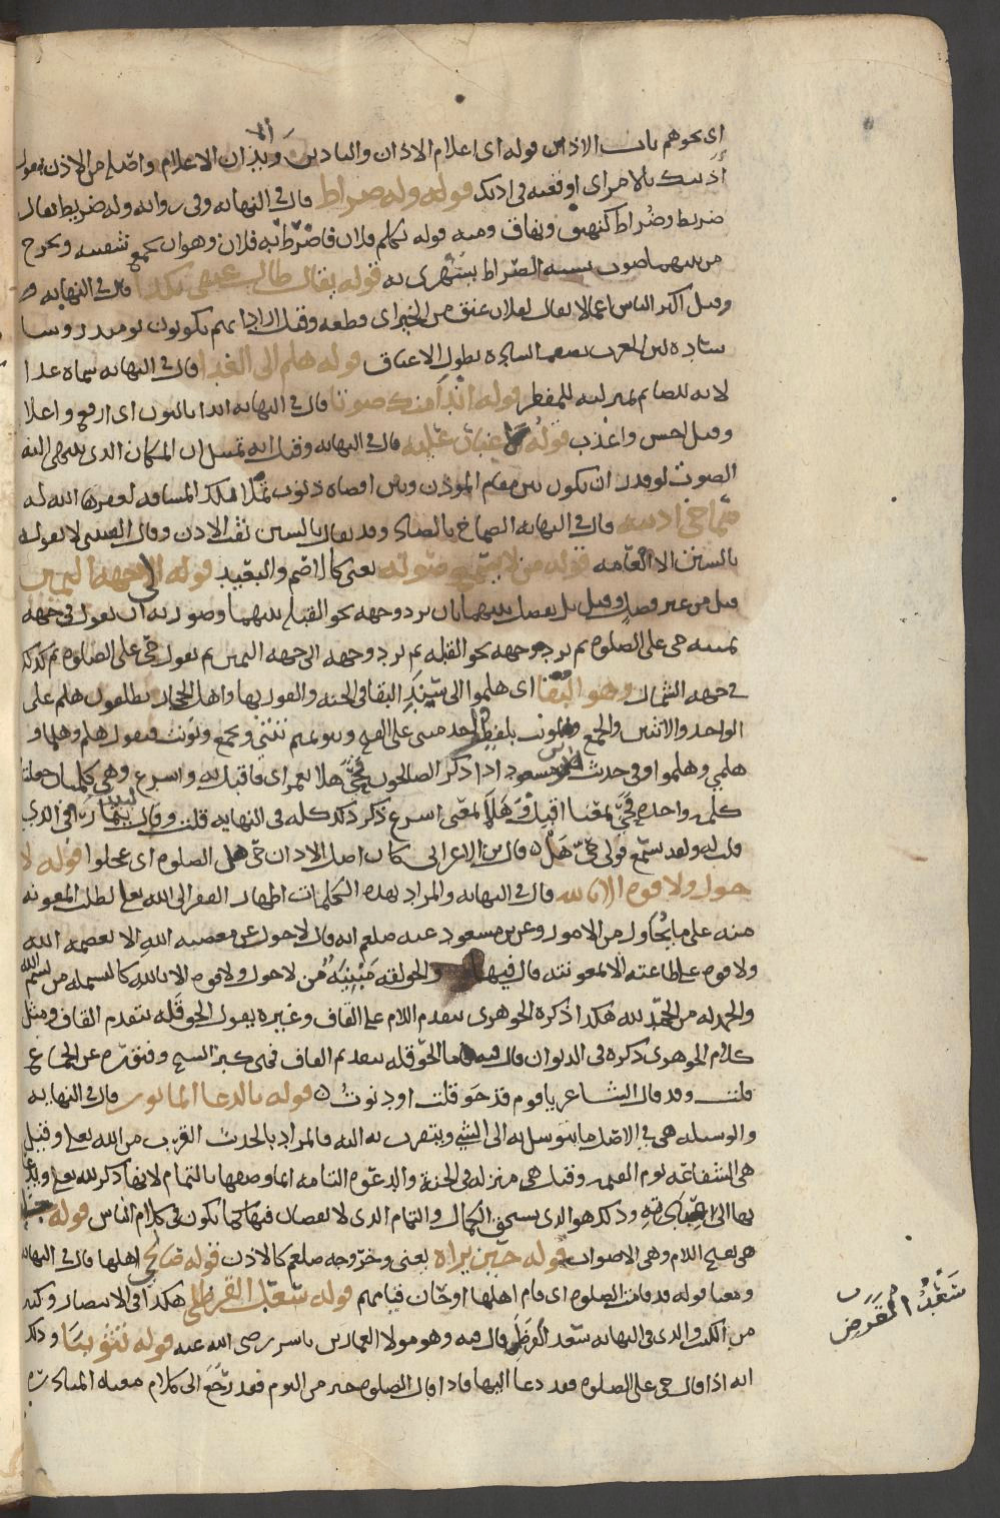 اى نحوهم باب الاذان قوله اى اعلام الاذان والتاذين وايذان الاعلام واصله من الاذن
اذنتك بالامر اى اوقعته فى اذنك قوله وله ضراط قال فى النهايه وفى روايه وله ضريط يقال
ضريط وضراط كنهيق ونهاق ومنه قوله تكلم فلان فاضرط به فلان وهو ان يجمع شفتيه ويخرج
من بينهما صوت يشبه الضراط يستهزى به قوله يقال طالت عنقى بكذا قال فى النهايه
وقيل اكثر الناس اعمالا يقال لفلان عنق من الخير اى قطعه وقيل اراد انهم يكونون يومئذ روسا
ساده لان العرب تصف الساده بطول الاعناق قوله هلم الى الغدا قال فى النهايه سماه غدا
لانه للصائم بمنزلته للمفطر قوله اندا منك صوتا قال فى النهايه اندا بالنون اى ارفع واعلا
وقيل احسن واعذب قوله قال فى النهايه وقيل انه تمثيل ان المكان الذى ينتهى اليه
الصوت لو قدر ان يكون بين مقام الموذن وبين اقصاه ذنوب تملا تلك المسافه لغفرها الله له
صماخى اذنيه قال فى النهايه الصماخ بالصاد وقد يقال بالسين ثقب الاذن وقال لا يقوله
بالسين الا العامه قوله من لا يسمع صوته يعنى كالاصم والبعيد قوله الى جهة اليمين
قيل من غير فصل وقيل بل يفصل بينهما بان يرد وجهه نحو القبله بينهما وصورته ان يقول فى جهه
يمينه حى على الصلوه ثم يرد وجهه نحو القبله ثم يرد وجهه الى جهه اليمين ثم يقول حى على الصلوه ثم كذلك
فى جهه الشمال وهو البقا اى هلموا الى سبب البقا فى الجنه والفوز بها واهل الحجاز يطلقون هلم على
الواحد والاثنين والجمع والمونث بلفظ واحد مبنى على الفتح وبنو تميم تثنى وتجمع وتونث فيقول هلم وهلما و
هلمي وهلموا وفى حديث ابن مسعود اذا ذكر الصالحون فحى هلا بعمر اى فاقبل به واسرع وهى كلمتان جعلتا
كلمه واحده فحى بمعنا اقبل وهلا بمعنى اسرع ذكر ذلك كله فى النهايه قلت وقال لبيد يتمارى فى الذى
قلت له ولقد يسمع قولى حى هل قال بن الاعرابى كان اصل الاذان حى هل الصلوه اى عجلوا قوله لا
حول ولا قوه الا بالله قال فى النهايه والمراد بهذه الكلمات اظهار الفقر الى الله تعالى لطلب المعونه
منه على ما يحاول من الامور وعن بن مسعود عنه صلعم انه قال لا حول عن معصيه الله الا بعصمه الله
ولا قوه على طاعته الا بمعونته قال فيها والحولقه مبنيه من لا حول ولا قوه الا بالله كالبسمله من بسم الله
والحمدله من الحمد لله هكذا ذكره الجوهرى بتقدم اللام على القاف وغيره يقول الحوقله بتقدم القاف ومثل
كلام الجوهرى ذكره فى الديوان قال فيه فاما الحوقله بتقديم القاف فهى كبر السن وفتوره عن الجماع
قلت وقد قال الشاعر يا قوم قد حوقلت او دنوت قوله بالدعا الماثور قال فى النهايه
والوسيله هى فى الاصل ما يتوسل به الى الشي ويتقرب به اليه فالمراد بالحديث القرب من الله تعالى وقيل
هى الشفاعه يوم القيمه وقيل هى منزله فى الجنه والدعوه التامه انما وصفها بالتمام لانها ذكر لله تعالى ويدعا
بها الى عبادته وذلك هو الذى يستحق الكمال والتمام الذى لا نقصان فيها كما يكون فى كلام الناس قوله
هى بفتح اللام وهى الاصوات قوله حين يراه يعنى وخروجه صلعم كالاذن قوله اهلها قال فى النهايه
ومعنا قوله قد قامت الصلوه اى قام اهلها او حان قيامهم قوله سعد القرظى هكذا فى الانتصار وكثير
من الكتب والذى فى النهايه سعد القرظ قال فيه وهو مولا لعمار بن ياسر رضى الله عنه قوله تثويبا وذلك
انه اذا قال حى على الصلوه فقد دعا اليها فاذا قال الصلوه خير من النوم فقد رجع الى كلام معناه المبادره
سعد القرض